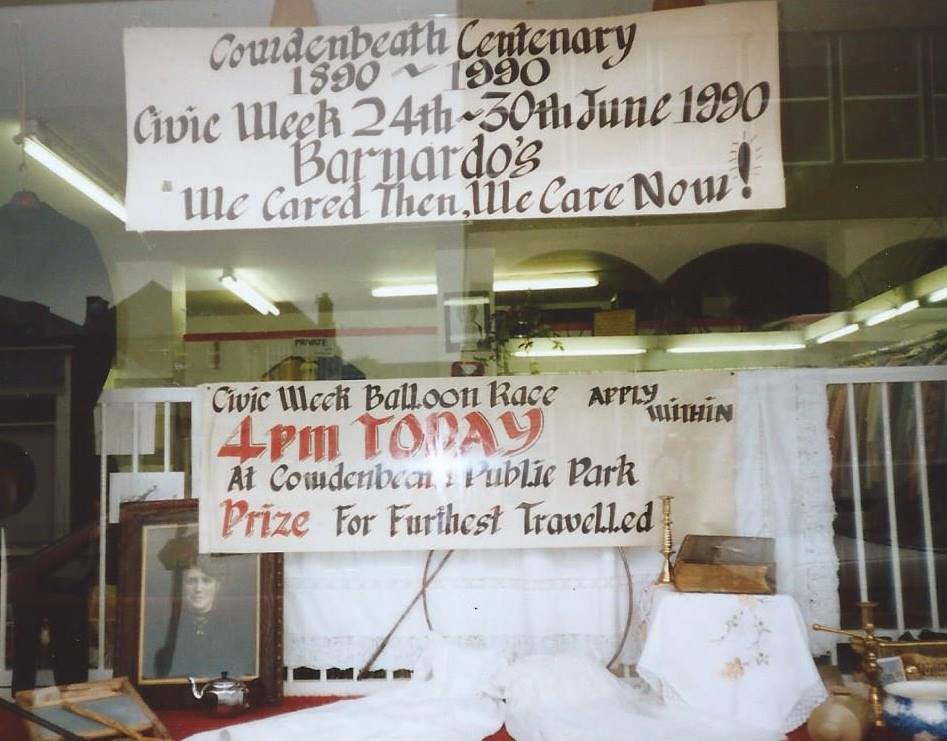 Cowdenbeath Centenary
1890 ~ 1990
Civic Week 24th ~ 30th June 1990
Barnardo's
"We Cared Then, We Care Now!
PRIVATE
Civic Week Balloon Race APPLY WITHIN
4pm TODAY
At Cowdenbeath Public Park
Prize For Furthest Travelled